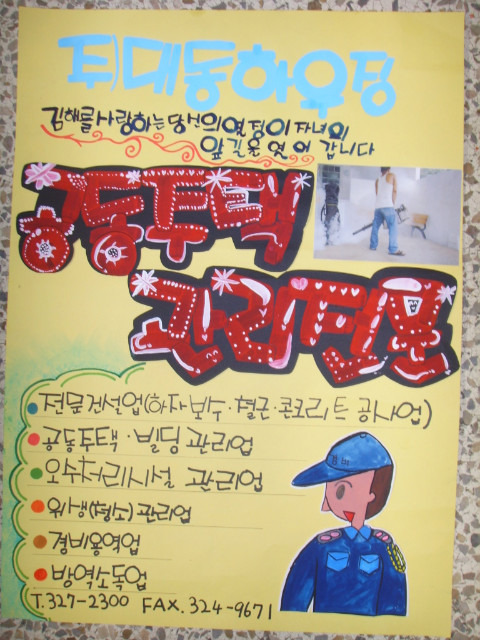 튀대동하우징
김해를사랑하는당신의열정이 자녀의
앞길을 열어 갑니다
공동주택
관리전문
전문건설업(하자보수·철근·콘크리트 공사업)
공동주택·빌딩 관리업
오수처리시설 관리업
위생(청소)관리업
경비용역업
방역소독업
T.327-2300 FAX.324-9671